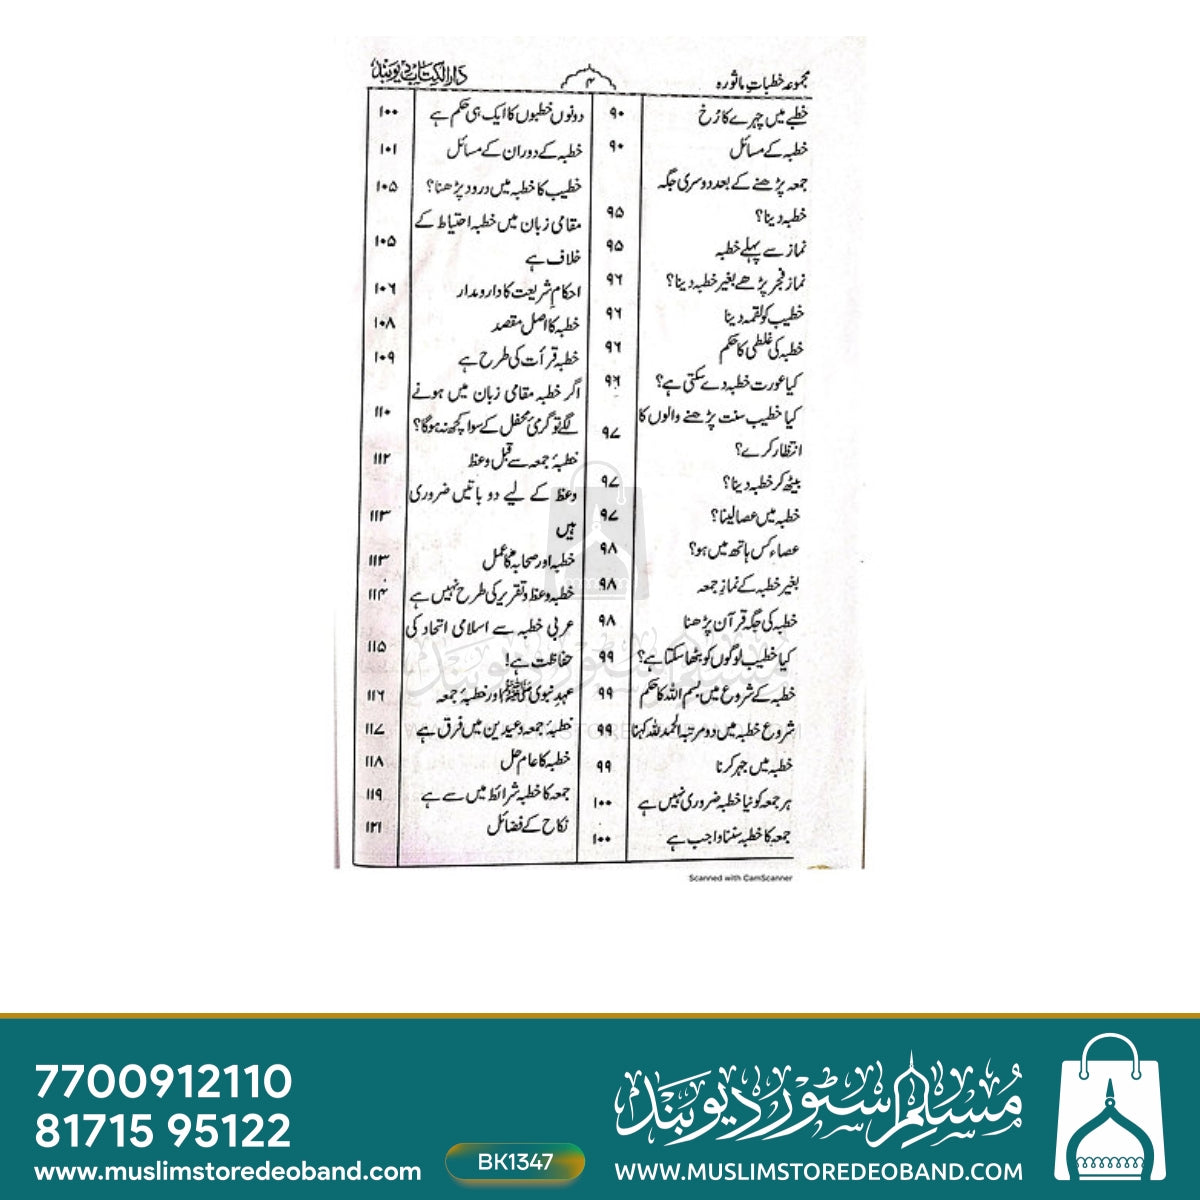 مجموعہ خطباتِ ماثورہ
۴
دار الکتاب دیوبند
خطبے میں چہرے کا رُخ ۹۰
خطبہ کے مسائل ۹۰
جمعہ پڑھنے کے بعد دوسری جگہ
خطبہ دینا؟ ۹۵
نماز سے پہلے خطبہ ۹۵
نماز فجر پڑھے بغیر خطبہ دینا؟ ۹۶
خطیب کو لقمہ دینا ۹۶
خطبہ کی غلطی کا حکم ۹۶
کیا عورت خطبہ دے سکتی ہے؟ ۹۶
کیا خطیب سنت پڑھنے والوں کا
انتظار کرے؟ ۹۷
بیٹھ کر خطبہ دینا؟ ۹۷
خطبہ میں عصا لینا؟ ۹۷
عصاء کس ہاتھ میں ہو؟ ۹۸
بغیر خطبہ کے نمازِ جمعہ ۹۸
خطبہ کی جگہ قرآن پڑھنا ۹۸
کیا خطیب لوگوں کو بٹھا سکتا ہے؟ ۹۹
خطبہ کے شروع میں بسم اللہ کا حکم ۹۹
شروع خطبہ میں دو مرتبہ الحمد للہ کہنا ۹۹
خطبہ میں جہر کرنا ۹۹
ہر جمعہ کو نیا خطبہ ضروری نہیں ہے ۱۰۰
جمعہ کا خطبہ سننا واجب ہے ۱۰۰
دونوں خطبوں کا ایک ہی حکم ہے ۱۰۰
خطبہ کے دوران کے مسائل ۱۰۱
خطیب کا خطبہ میں درود پڑھنا؟ ۱۰۵
مقامی زبان میں خطبہ احتیاط کے
خلاف ہے ۱۰۵
احکامِ شریعت کا دارومدار ۱۰۶
خطبہ کا اصل مقصد ۱۰۸
خطبہ قرأت کی طرح ہے ۱۰۹
اگر خطبہ مقامی زبان میں ہونے
لگے تو گرمیٔ محفل کے سوا کچھ نہ ہوگا؟ ۱۱۰
خطبۂ جمعہ سے قبل وعظ ۱۱۲
وعظ کے لیے دو باتیں ضروری
ہیں ۱۱۳
خطبہ اور صحابہؓ کا عمل ۱۱۳
خطبہ وعظ و تقریر کی طرح نہیں ہے ۱۱۴
عربی خطبہ سے اسلامی اتحاد کی
حفاظت ہے! ۱۱۵
عہدِ نبوی ﷺ اور خطبۂ جمعہ ۱۱۶
خطبۂ جمعہ و عیدین میں فرق ہے ۱۱۷
خطبہ کا عام حل ۱۱۸
جمعہ کا خطبہ شرائط میں سے ہے ۱۱۹
نکاح کے فضائل ۱۲۱
Scanned with CamScanner
7700912110
81715 95122
www.muslimstoredeoband.com
BK1347
مسلم سٹور دیوبند
WWW.MUSLIMSTOREDEOBAND.COM